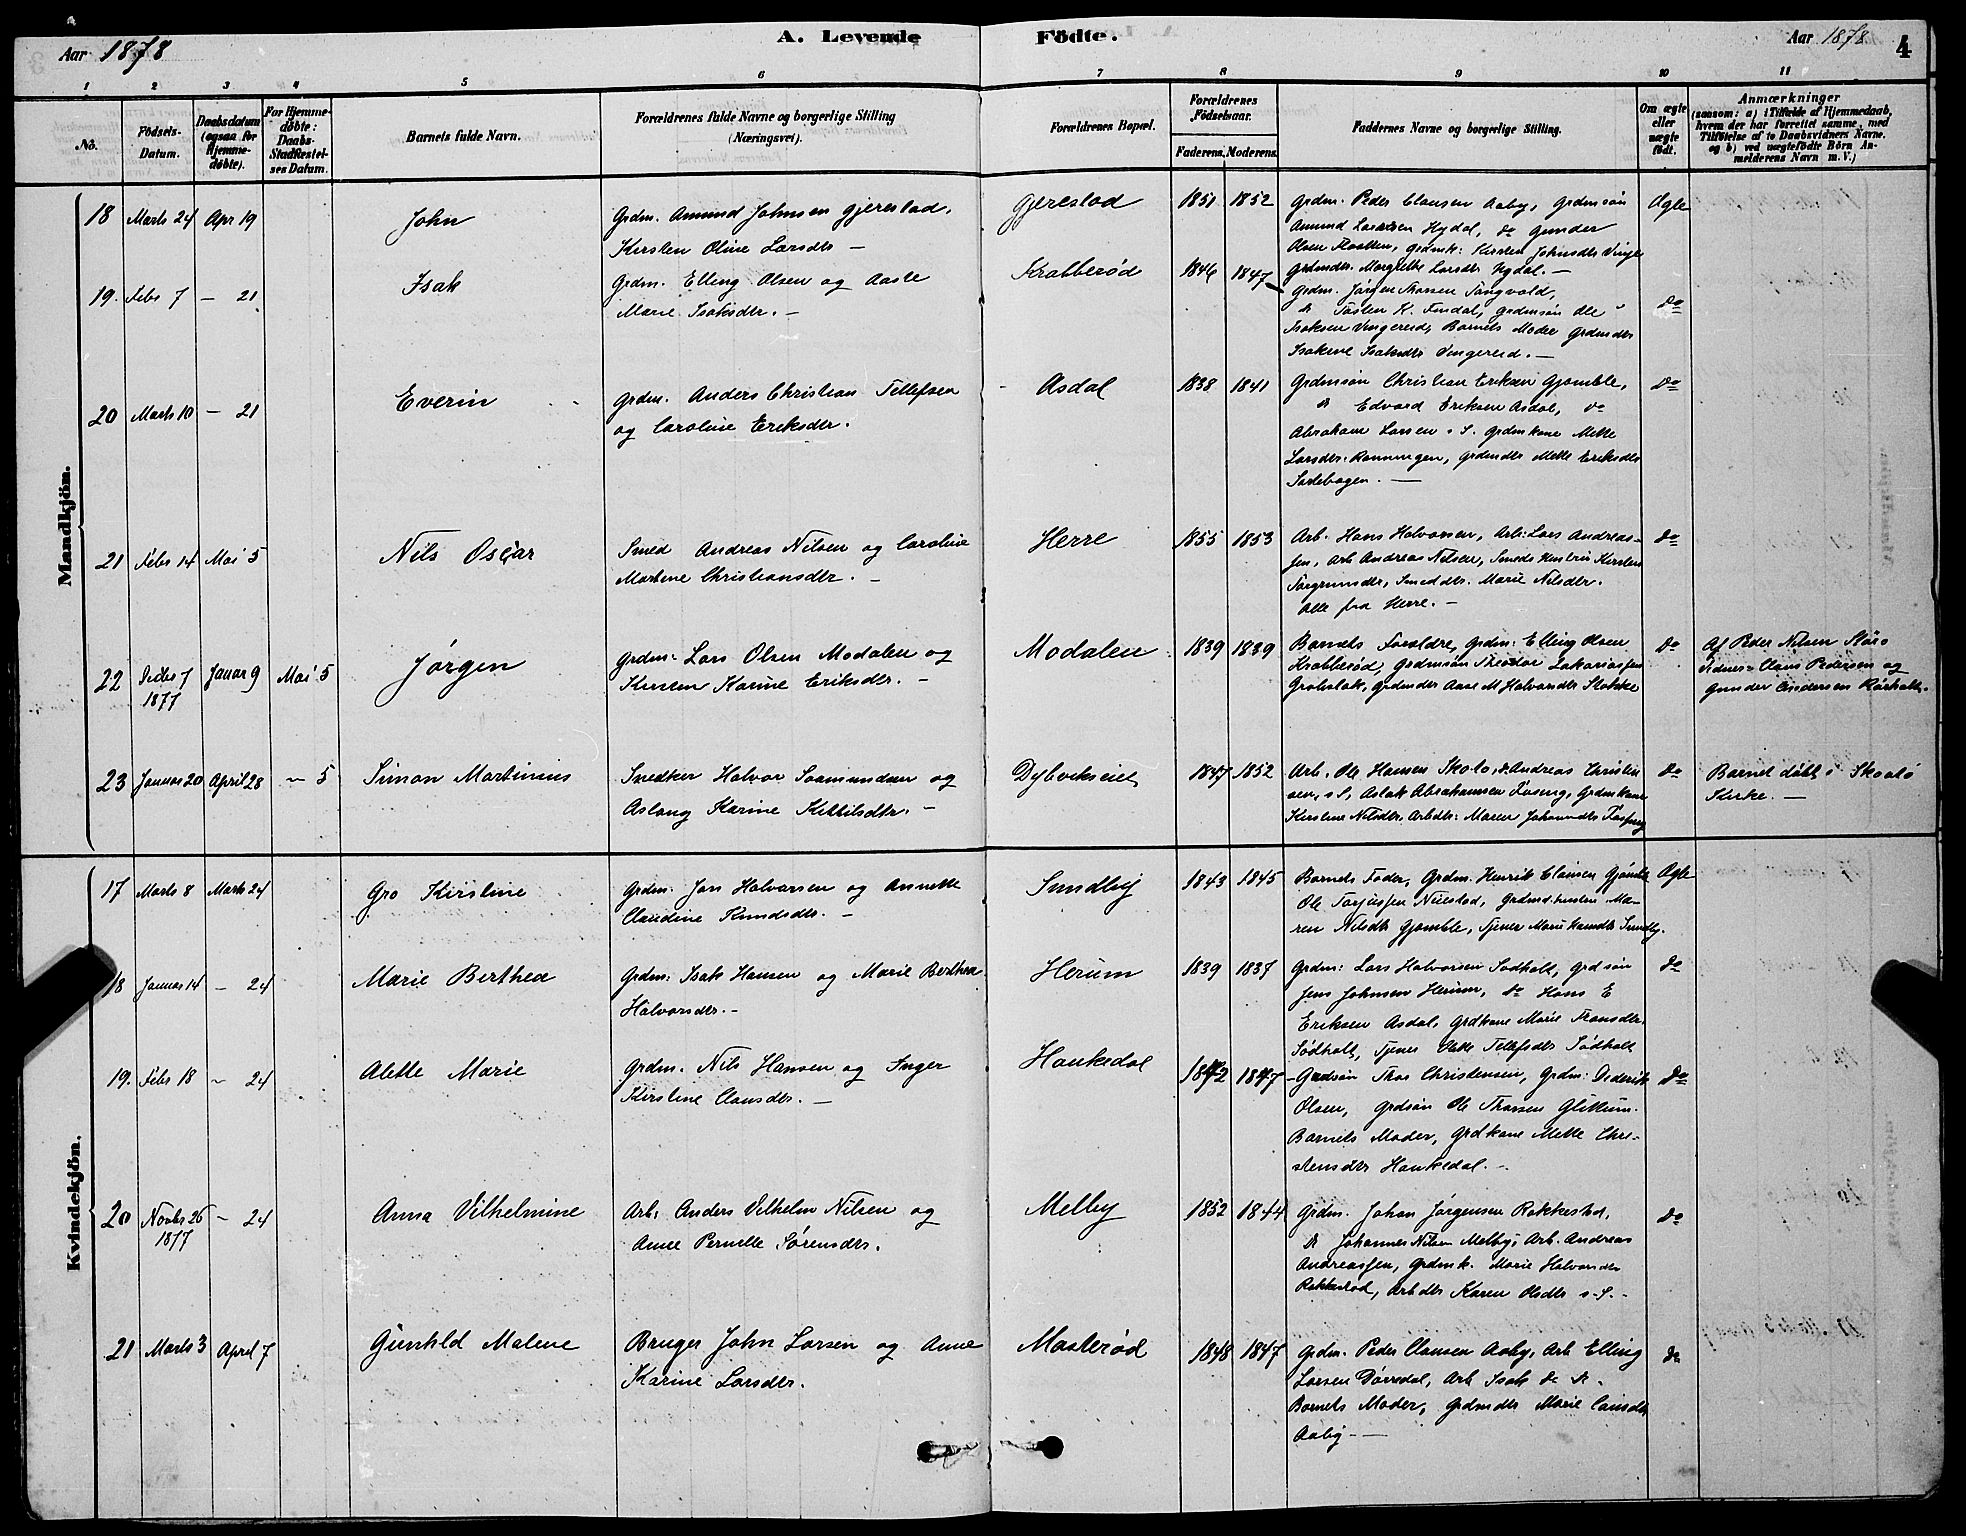 Aar 1878
A. Levende Födte.
Aar 1878
4
1 2 3 4 5 6 7 8 9 10 11
No.
Födsels-Datum.
Daabsdatum (ogsaa for Hjemme-döbte).
For Hjemme-döbte: Daabs-Stadfæstel-ses Datum.
Barnets fulde Navn.
Forældrenes fulde Navne og borgerlige Stilling (Næringsvei).
Forældrenes Bopæl.
Forældrenes Födselsaar.
Faderens. Moderens.
Faddernes Navne og borgerlige Stilling.
Om ægte eller uægte født.
Anmærkninger
(saasom: a) i Tilfælde af Hjemmedaab,
hvem der har forrettet samme, med
Tilföielse af to Daabsvidners Navne,
og b) ved uægtefödte Börn An-
melderens Navn m. V.)
Mandkjön.
18 Marts 24 Apr 19
John
Grdm. Amund Johnsen Gjerestad,
Kirsten Oline Larsdtr —
Gjerestad
1851 1852
Grdm. Peder Clausen Aaby, Grdmsøn
Amund Larsen Hydal, do Gunder
Olsen, Grdmk: Kirsten Johnsdtr Vinje
Grdmdtr. Margrethe Larsdtr Hydal. —
Ægte
19. Febr 7 — 21
Isak
Grdm. Elling Olsen og Aaste
Marie Isaksdtr. —
Krabberød
1846 1847
Grdm. Jørgen Thorsen Tangvald,
do K. Findal, Grdmsøn Ole
Isaksen Vingereid, Barnets Moder Grdmdtr
Isakine Isaksdtr Vingereid. —
do
20 Marts 10 — 21
Everin
Grdm. Anders Christian Tellefsen
og Caroline Eriksdtr.
Asdal
1838 1841
Grdmsøn Christian Eriksen Gjømble,
do Edvard Eriksen Asdal, do
Abraham Larsen s. S. Grdmkone Mette
Larsdtr: Rønningen, Grdmdtr Mette Eriksdtr
do
21 Febr 14 Mai 5
Nils Oscar
Smed Andreas Nilsen og Caroline
Martine Christiansdtr. —
Herre
1855 1853
Arb. Hans Halvorsen, Arb: Lars Andreas-
sen, Arb Andreas Nilsen, Smeds Hustru Kirsten
Torgrimsdtr, Smeddtr. Marie Nilsdtr.
Alle fra Herre. —
do
22 Decbr 7 1877 Januar 9 Mai 5
Jørgen
Grdm: Lars Olsen Modalen og
Kirsten Karine Eriksdtr. —
Modalen
1839 1839
Barnets Forældre, Grdm: Elling Olsen
Krabberød, Grdmsøn Theodor Zakariassen
Grobstok, Grdmdtr Aase M. Halvorsdtr Stokke
do
Af Peder Nilsen
Vidner: Claus Pedersen og
Gunder Andersen Rørholt.
23 Januar 20 April 28 — 5
Simon Martinius
Snedker Halvor Saamundsen og
Aslaug Karine Kittilsdtr. —
Dybvikseiet
1847 1852
Arb. Ole Hansen Skolo, do Andreas Christen
sen, s S, Aslak Abrahamsen Fosing, Grdmkone
Kirstine Nilsdtr, Arbdtr: Maren Johannesdtr Fossing
do
Barnet døbt i Skaatø
Kirke. —
Kvindekjön.
17 Marts 8 Marts 24
Gro Kirstine
Grdm. Jon Halvorsen og Annette
Claudine Knudsdtr. —
Sundby
1843 1845
Barnets Fader, Grdm. Henrik Clausen Gjømble
Ole Torjussen Nüestad, Grdmd.hustru Ma-
ren Nilsdtr Gjømble, Tjener Marie Knudsdtr Sundby.
Ægte
18 Januar 14 — 24
Marie Berthea
Grdm: Isak Hansen og Marie Berthea
Halvorsdtr. —
Herum
1839 1837
Grdm: Lars Halvorsen Sødholt, Grdsøn
Jens Johnsen Herum, do Hans E
Eriksen Asdal, Grdkone Marie Fransdtr.
Sødholt, Tjener Mette Tellefsdtr Sødholt
do
19. Febr 18 — 24
Alette Marie
Grdm. Nils Hansen og Inger
Kirstine Clausdtr. —
Haukedal
1842 1847
Grdsøn Thor Christensen, Grdm: Dederik
Olsen, Grdsøn Ole Thorsen Glittum.
Barnets Moder, Grdkone Mette Chri-
stensdtr Haukedal. —
do
20 Novbr 26 1877 — 24
Anna Vilhelmine
Arb. Anders Vilhelm Nilsen og
Anne Pernelle Sørensdtr.
Melby
1852 1844
Grdm. Johan Jørgensen Rakkestad,
do Johannes Nilsen Melby, Arb. Andreas
Andreassen, Grdmk. Marie Halvorsdtr
Rakkestad, Arbdtr Karen Olsdtr s. S. —
do
21 Marts 3 April 7
Gunhld Malene
Bruger John Larsen og Anne
Karine Larsdtr.
Masterød
1848 1847
Grdm. Peder Clausen Aaby, Arb Elling
Larsen Dørredal, Arb Isak do do.
Barnets Moder, Grdmdtr Marie Clausdtr
Aaby —
do